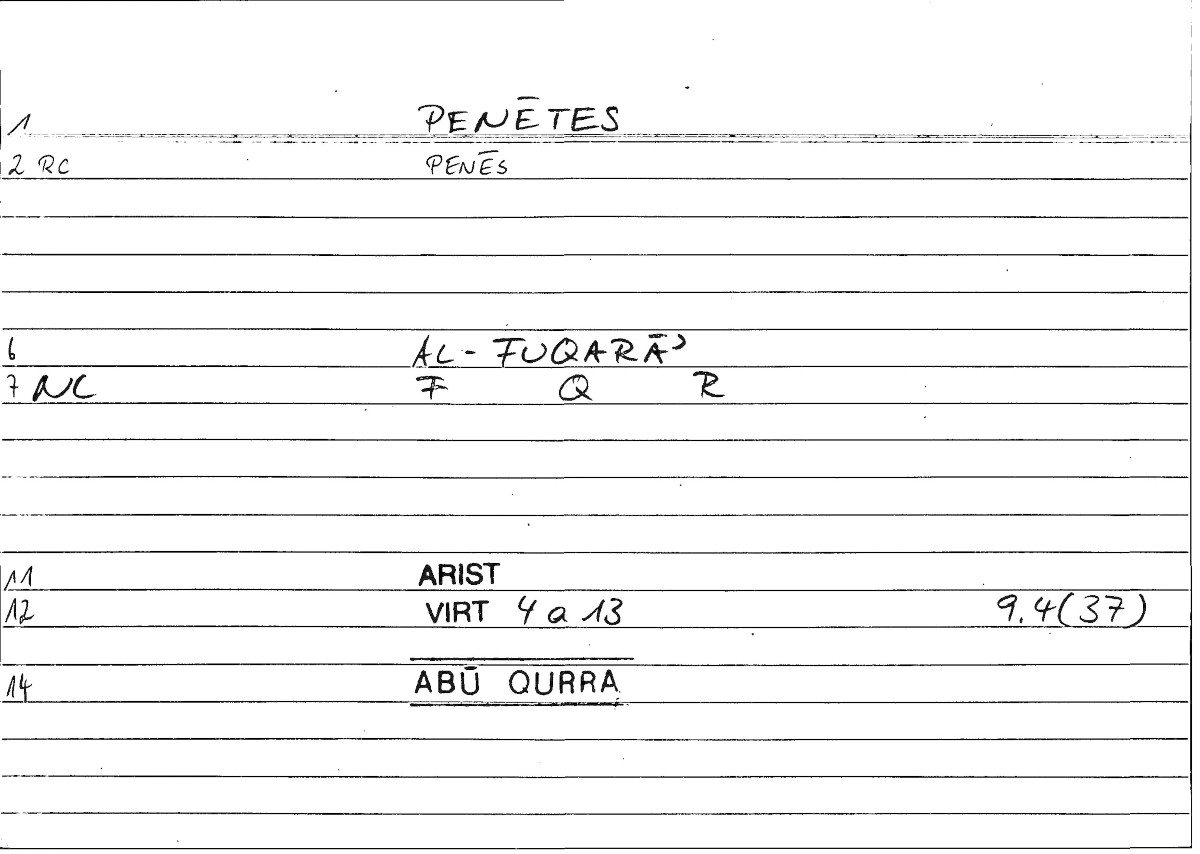 1 PENĒTES
2 RC PENĒS
6 AL-FUQARĀʾ
7 NC F Q R
11 ARIST
12 VIRT 4 a 13 9.4(37)
14 ABŪ QURRA